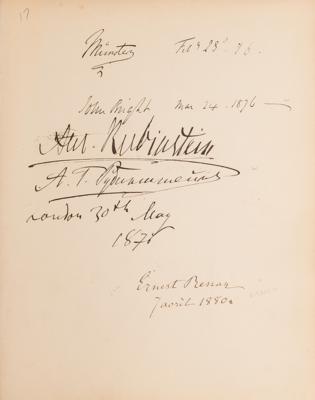 17
Münster Feb 28. 76.
John Bright Mar 24. 1876
Ant. Rubinstein
А. Г. Рубинштейнъ
London 30th May
1876
Ernest Renan
7 avril 1880